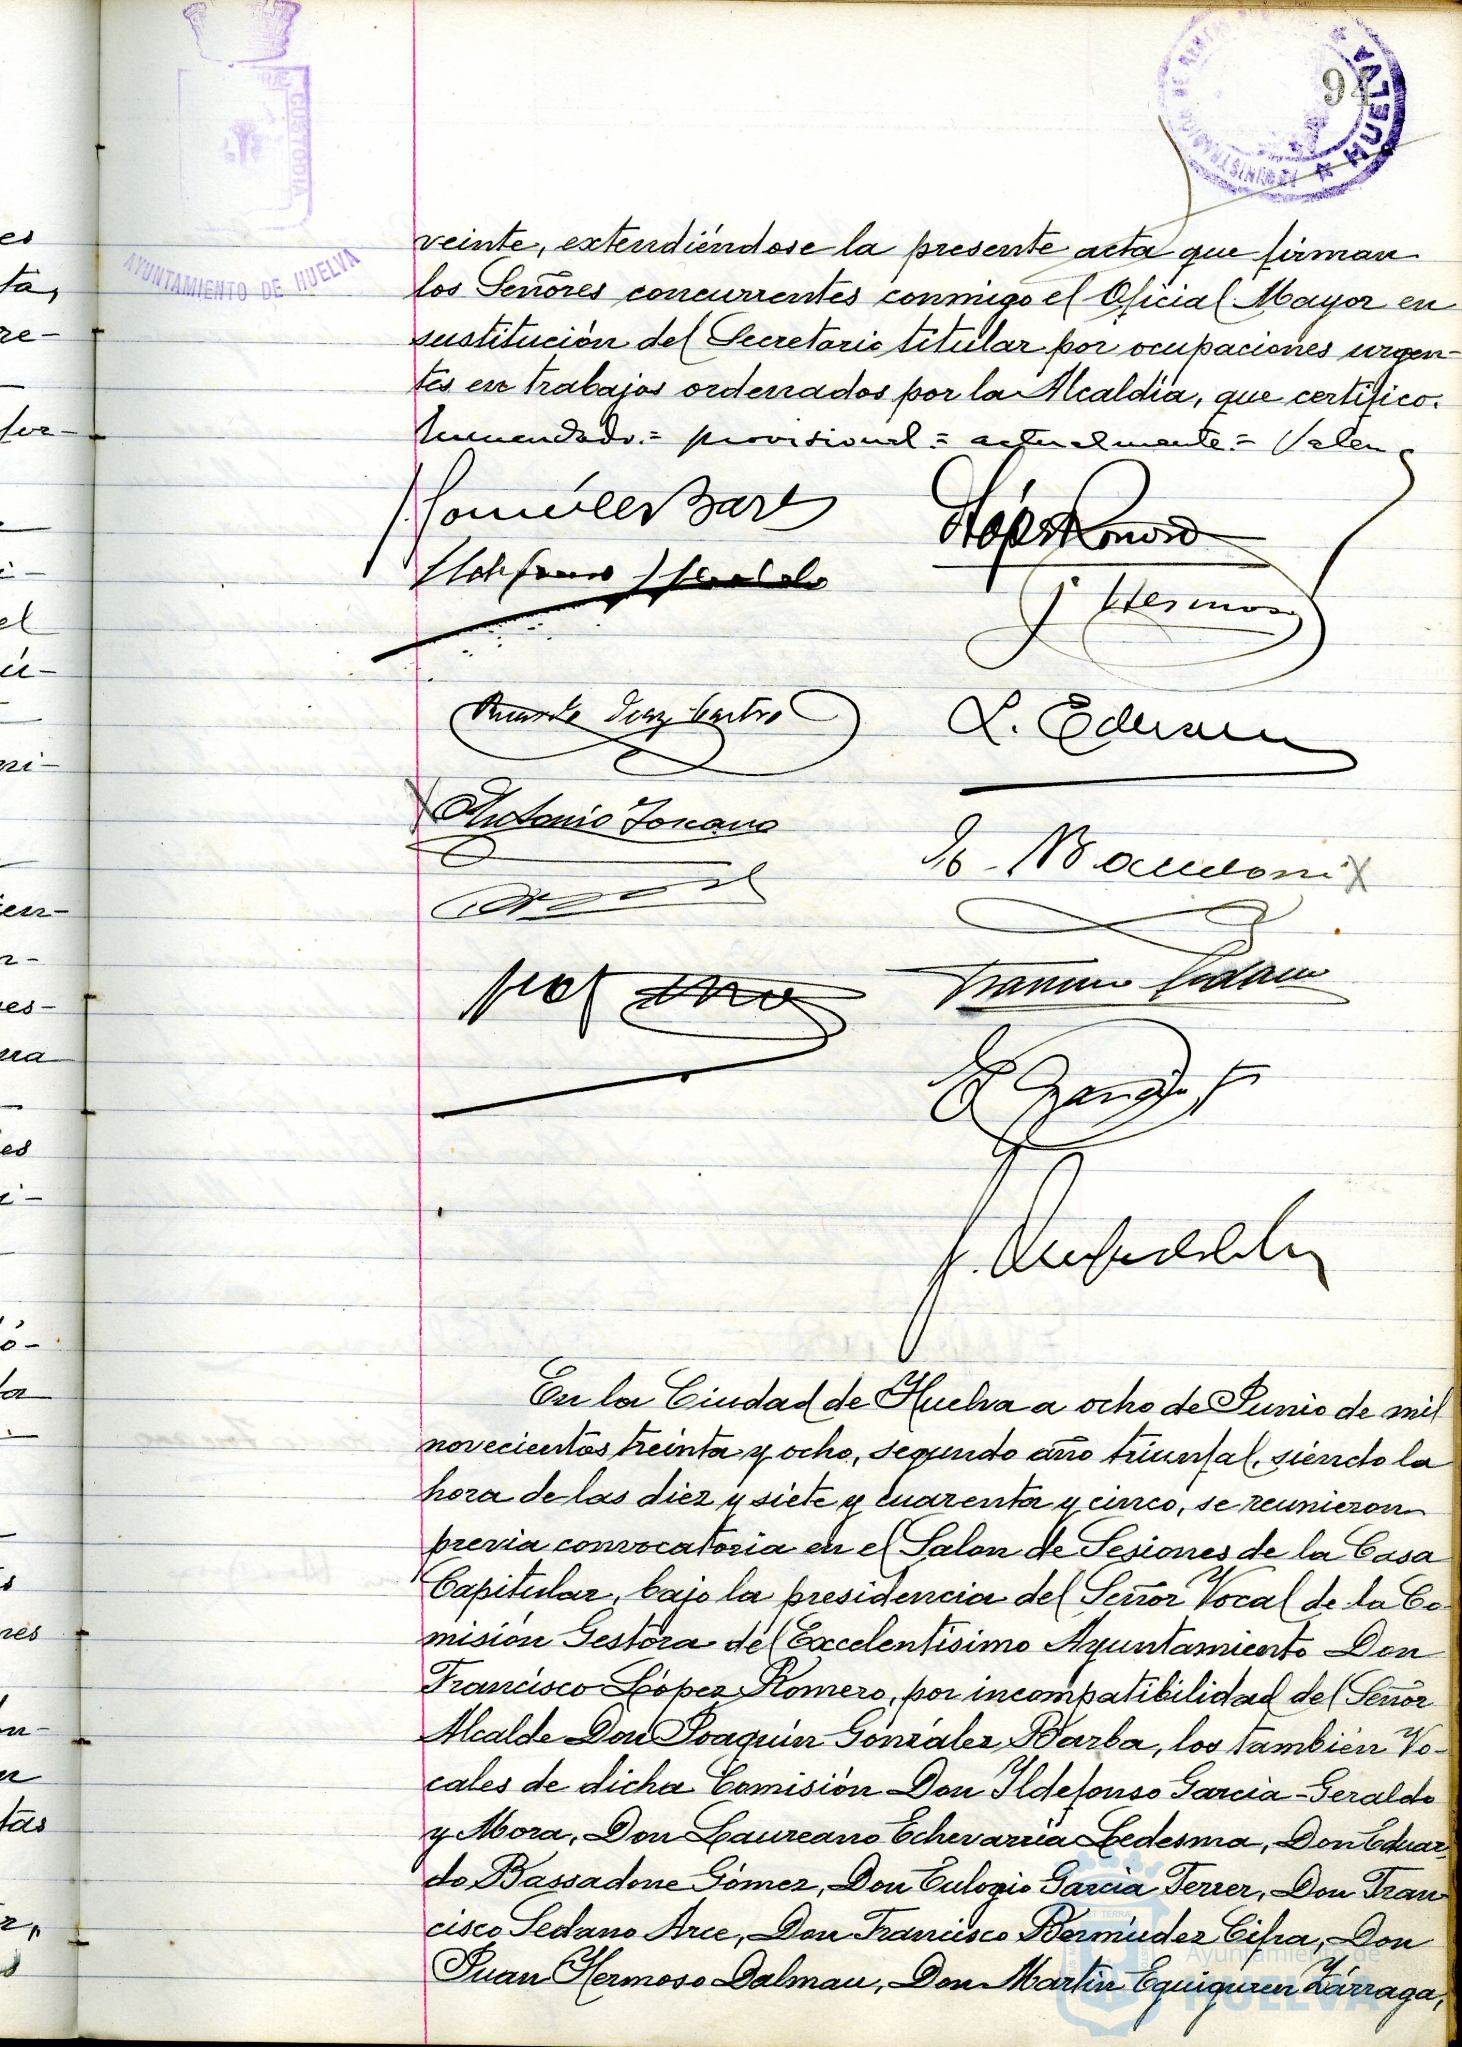 94
HUELVA
CUSTODIA
AYUNTAMIENTO DE HUELVA
veinte, extendiéndose la presente acta que firman
los Señores concurrentes conmigo el Oficial Mayor en
sustitución del Secretario titular por ocupaciones urgen-
tes en trabajos ordenados por la Alcaldía, que certifico.
Enmendado.= provisional = actualmente.= Valen
J. González Barba
López Romero
J. Hermoso
Ricardo Díaz Castro
Antonio
Francisco Sedano
En la Ciudad de Huelva a ocho de Junio de mil
novecientos treinta y ocho, segundo año triunfal, siendo la
hora de las diez y siete y cuarenta y cinco, se reunieron
previa convocatoria en el Salon de Sesiones de la Casa
Capitular, bajo la presidencia del Señor Vocal de la Co-
misión Gestora del Excelentísimo Ayuntamiento Don
Francisco López Romero, por incompatibilidad del Señor
Alcalde Don Joaquín González Barba, los también Vo-
cales de dicha Comisión Don Ildefonso García-Geraldo
y Mora, Don Laureano Echevarría Ledesma, Don Eduar-
do Bassadone Gómez, Don Eulogio García Ferrer, Don Fran-
cisco Sedano Arce, Don Francisco Bermúdez Cifra, Don
Juan Hermoso Dalmau, Don Martín Eguiguren Zárraga,
Ayuntamiento de
HUELVA